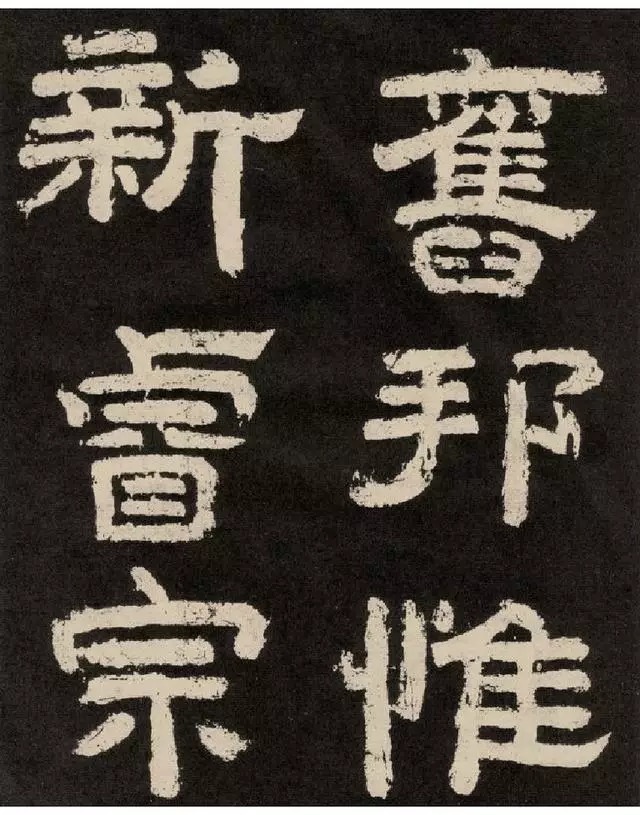 舊邦惟
新睿宗